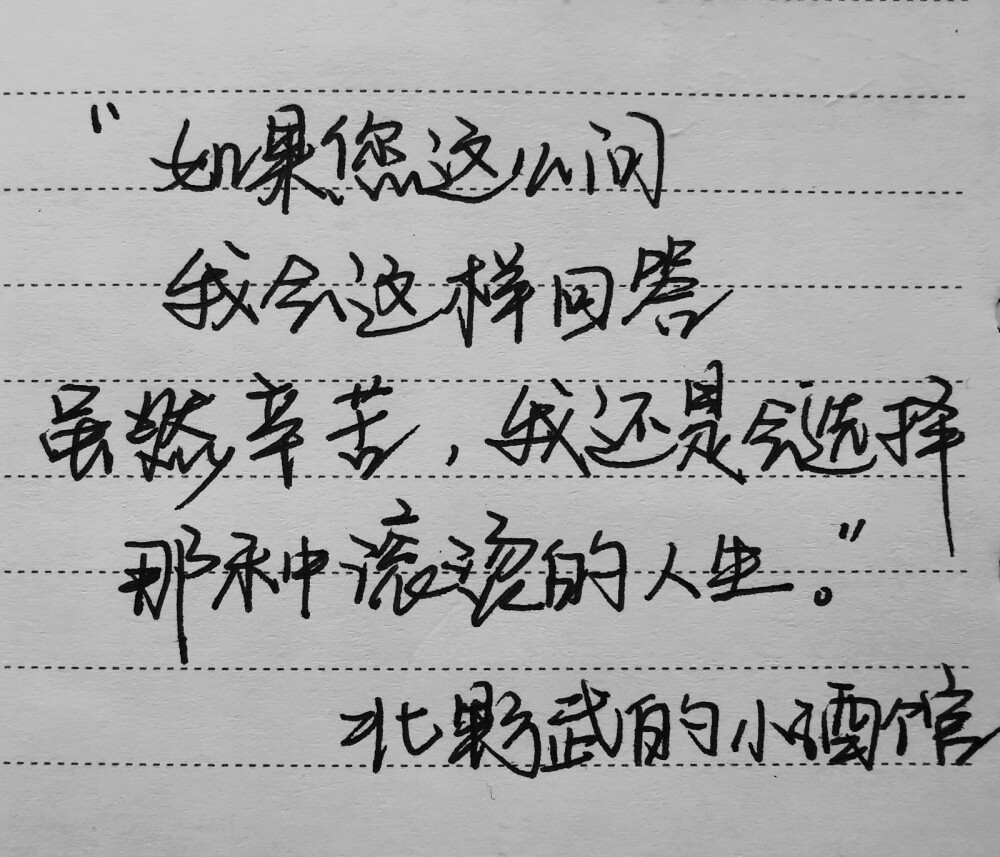 “如果您这么问
我会这样回答
虽然辛苦，我还是会选择
那种滚烫的人生。”
北野武的小酒馆